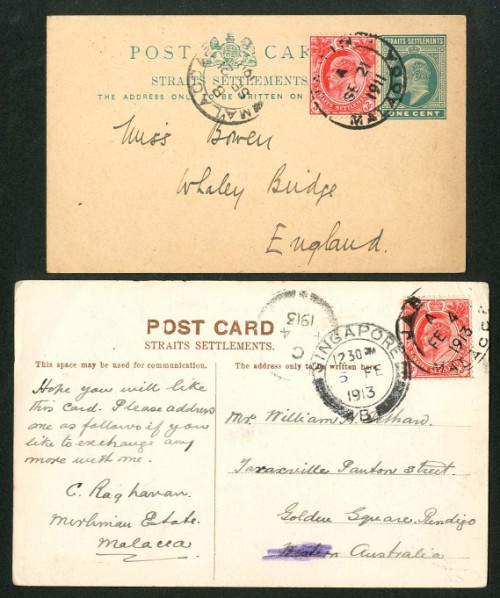 POST CARD
STRAITS SETTLEMENTS
THE ADDRESS ONLY TO BE WRITTEN ON
STRAITS SETTLEMENTS
ONE CENT
STRAITS SETTLEMENTS
4
SE 2
1911
MALACCA
MALACCA
Miss Bowen
Whaley Bridge
England.
POST CARD
STRAITS SETTLEMENTS.
This space may be used for communication.
The address only to be written here.
Hope you will like
this card. Please address
one as follows if you
like to exchange any
more with me.
C. Raghavan.
Merliman Estate.
Malacca
1913
SINGAPORE
12 30 PM
5 FE
1913
FE 4
1913
MALACCA
Mr. William
Taraxville Panton Street.
Golden Square. Bendigo
Australia